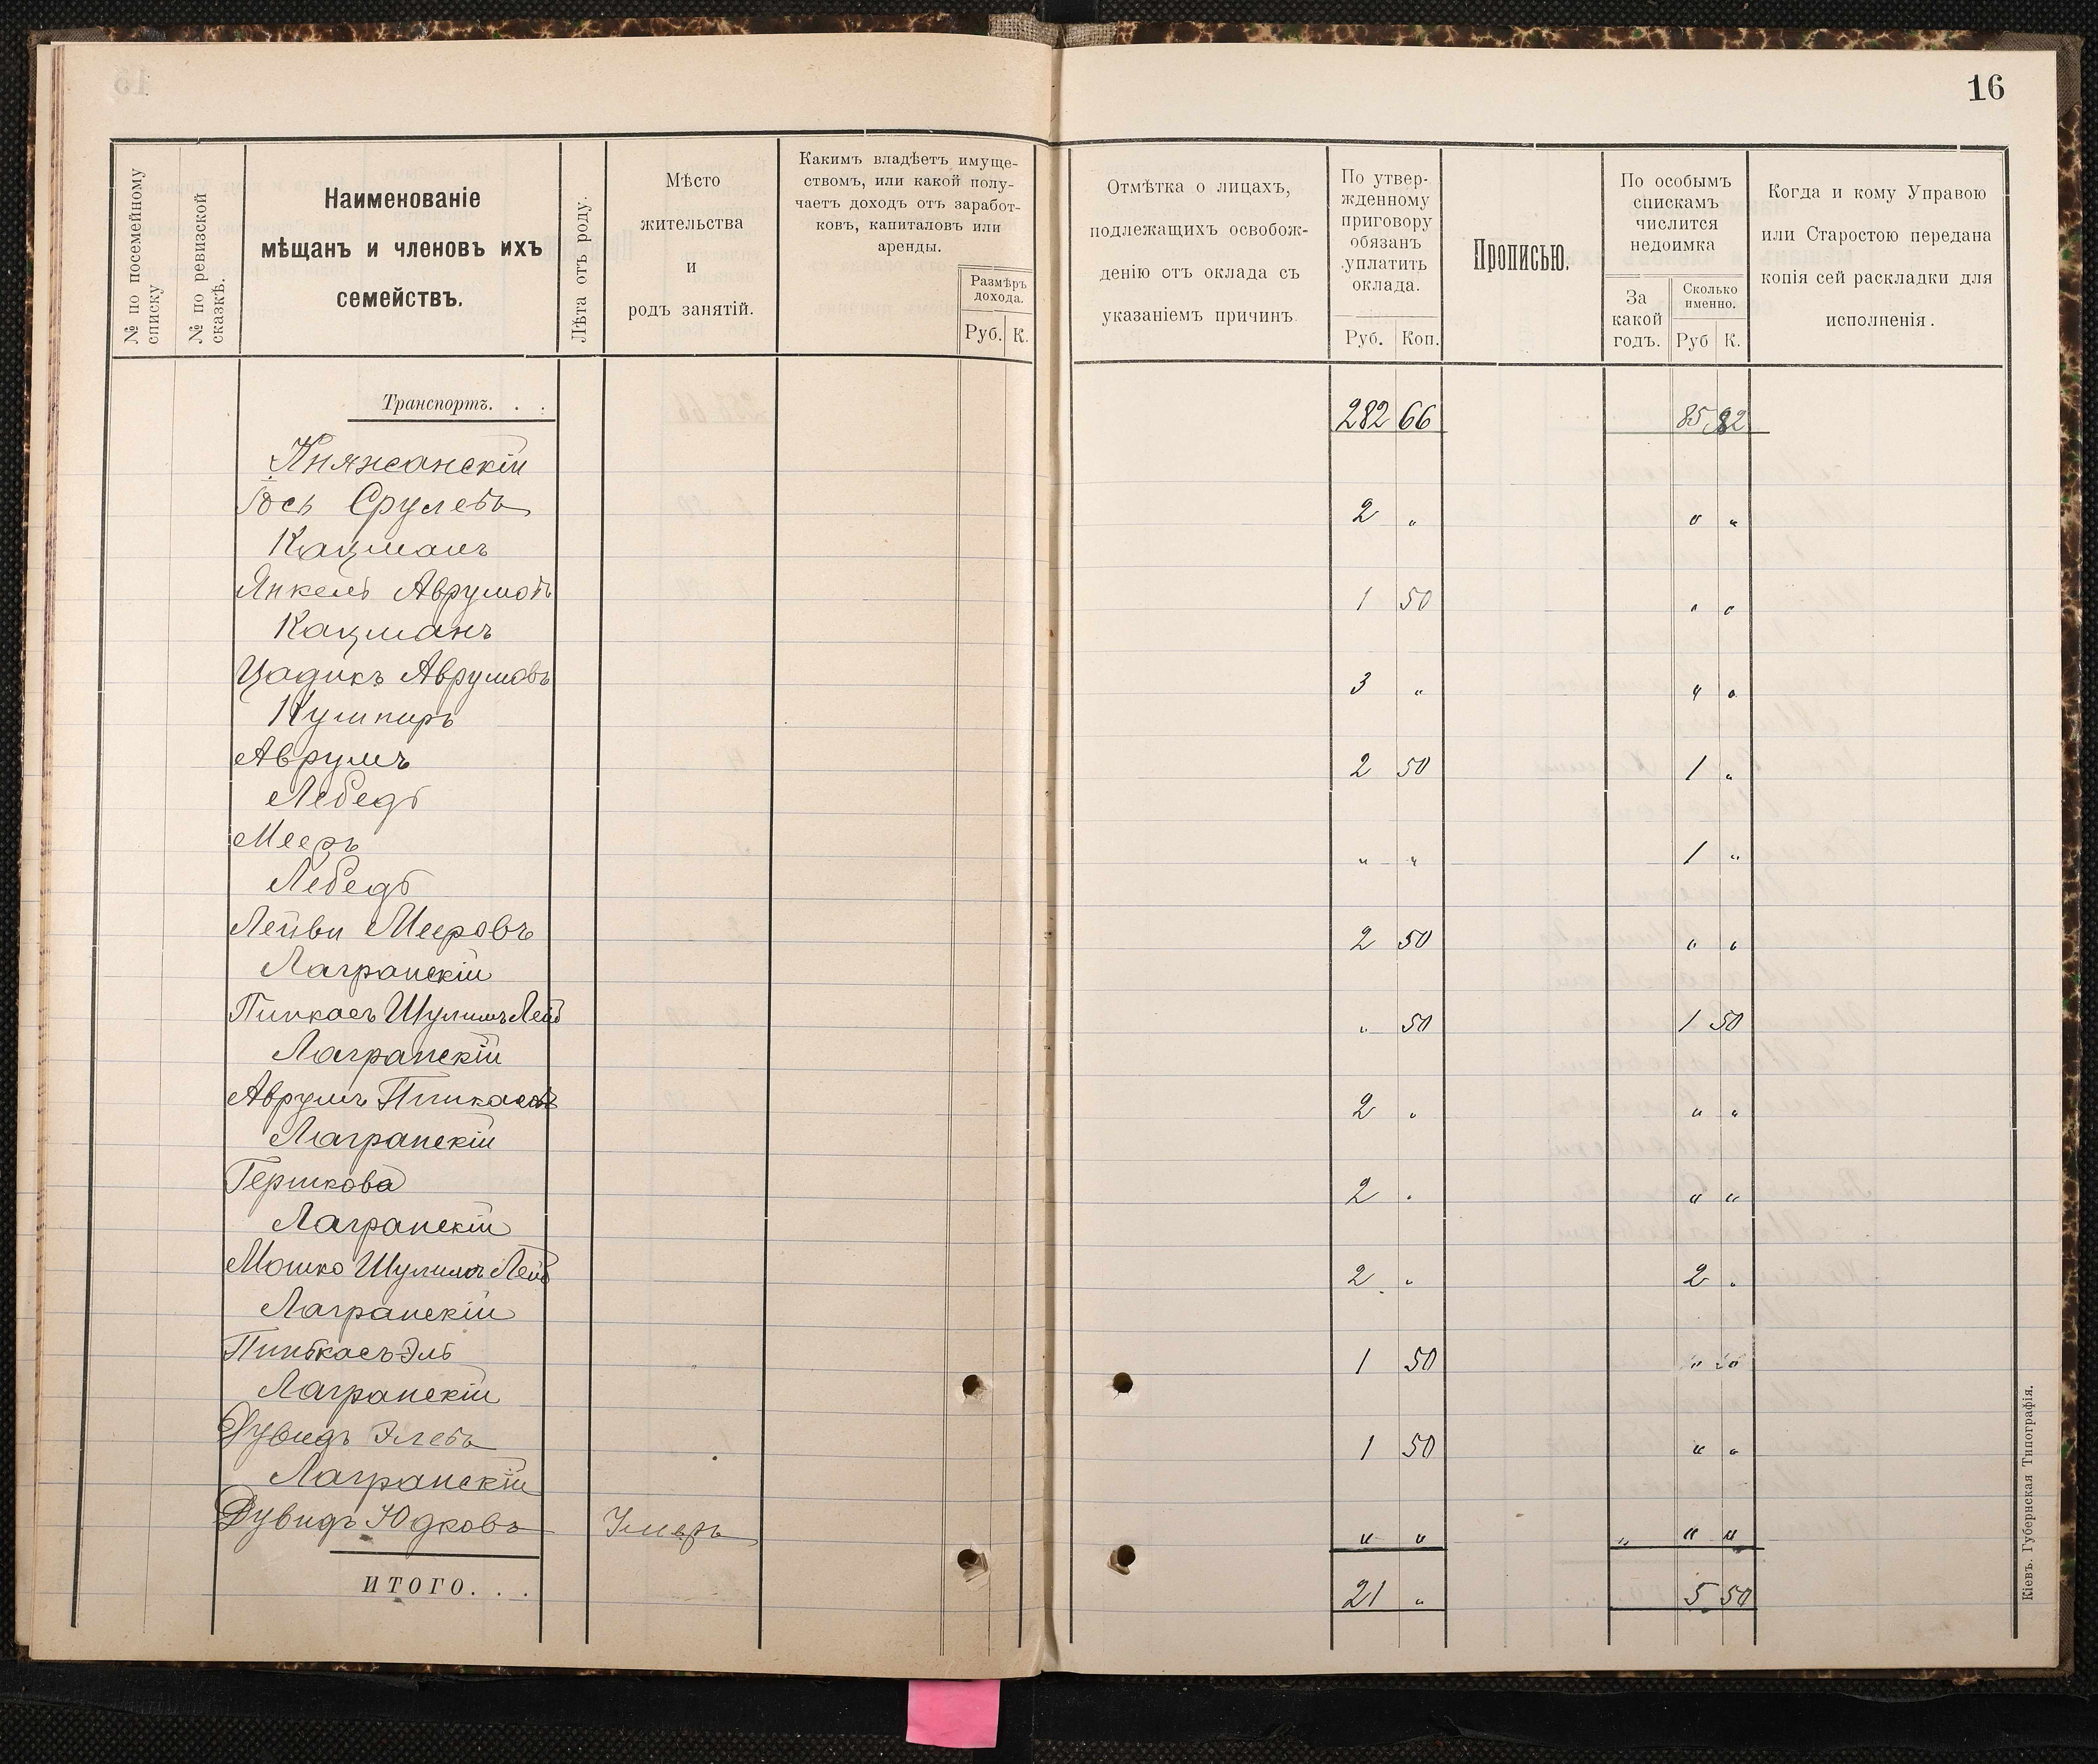 16
№ по посемейному списку
№ по ревизской сказкѣ.
Наименованіе
мѣщанъ и членовъ ихъ
семействъ.
Лѣта отъ роду.
Мѣсто
жительства
и
родъ занятій.
Какимъ владѣетъ имуще-
ствомъ, или какой полу-
чаетъ доходъ отъ заработ-
ковъ, капиталовъ или
аренды.
Размѣръ
дохода.
Руб. К.
Отмѣтка о лицахъ,
подлежащихъ освобож-
денію отъ оклада съ
указаніемъ причинъ
По утвер-
жденному
приговору
обязанъ
уплатить
оклада.
Руб. Коп.
Прописью.
По особымъ
спискамъ
числится
недоимка
За
какой
годъ.
Сколько
именно.
Руб К.
Когда и кому Управою
или Старостою передана
копія сей раскладки для
исполненія.
Транспортъ. . . 282 66 85 82
Княжанскій
Іось Срулевъ 2 „ „ „
Кацманъ
Янкель Аврумовъ 1 50 „ „
Кацманъ
Цадикъ Аврумовъ 3 „ „ „
Кушниръ
Аврумъ 2 50 1 „
Лебедь
Мееръ „ „ 1 „
Лебедь
Лейви Мееровъ 2 50 „ „
Лагранскій
Пинкасъ Шулимъ Лейб „ 50 1 50
Лагранскій
Аврумъ Пинкасовъ 2 „ „ „
Лагранскій
Гершкова 2 „ „ „
Лагранскій
Мошко Шулимъ Лейб 2 „ 2 „
Лагранскій
Пинькасъ Эль 1 50 „ „
Лагранскій
Дувидъ Элевъ 1 50 „ „
Лагранскій
Дувидъ Юдковъ Умеръ „ „ „ „ „
ИТОГО. . . 21 „ 5 50
Кіевъ. Губернская Типографія.